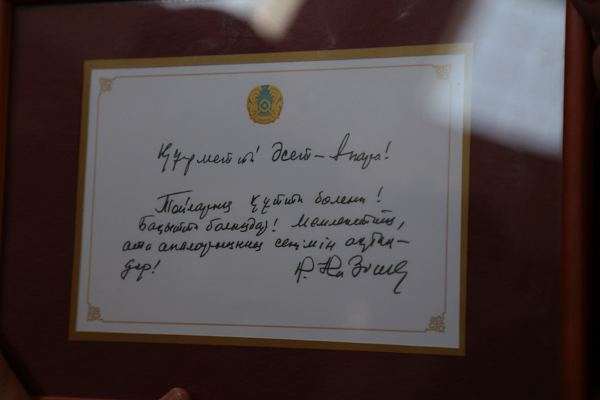 Құрметті Әсет – Апара!
Тойларың құтты болсын!
Бақытты болыңдар! Мемлекеттің,
ата аналарыңның сенімін ақтаң-
дар!